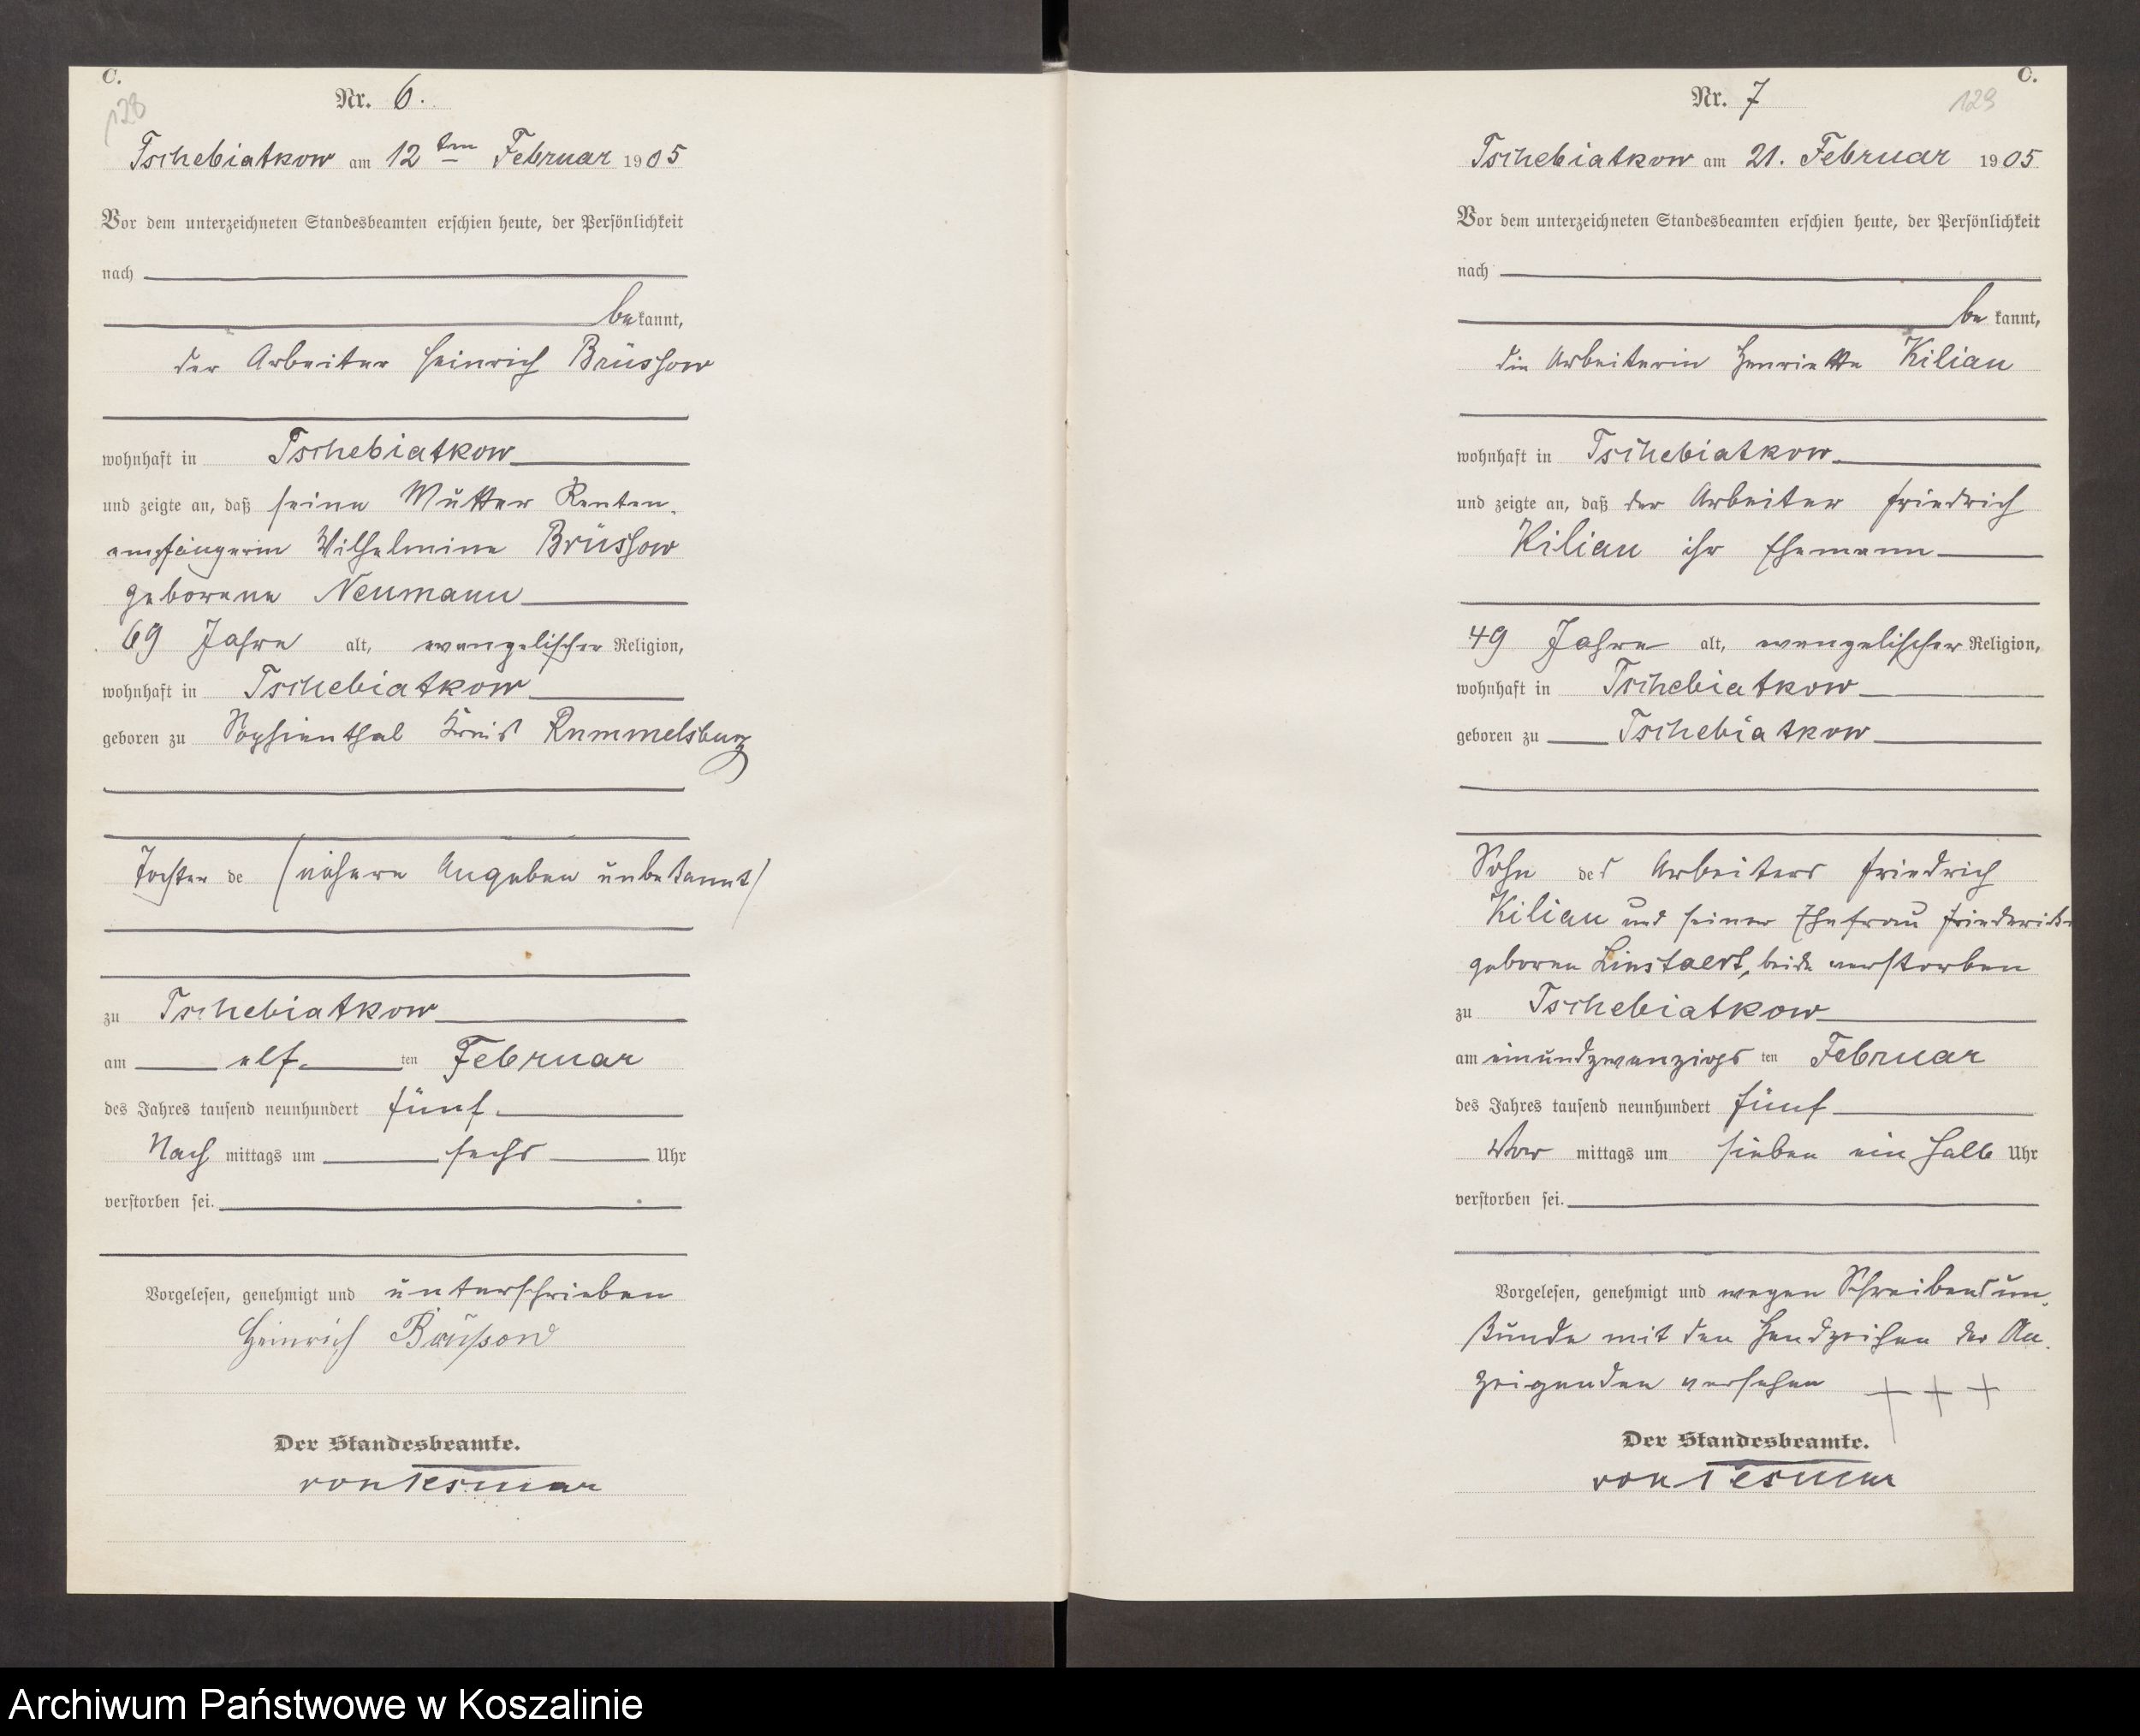 C.
128
Nr. 6.
Tschebiatkow am 12ten Februar 1905
Vor dem unterzeichneten Standesbeamten erschien heute, der Persönlichkeit
nach
bekannt,
der Arbeiter Heinrich Brüssow
wohnhaft in Tschebiatkow
und zeigte an, daß seine Mutter Renten-
empfängerin Wilhelmine Brüssow
geborene Neumann
69 Jahre alt, evangelischer Religion,
wohnhaft in Tschebiatkow
geboren zu Sophienthal Kreis Rummelsburg
Tochter de (nähere Angaben unbekannt)
zu Tschebiatkow
am elf ten Februar
des Jahres tausend neunhundert fünf
Nach mittags um sechs Uhr
verstorben sei.
Vorgelesen, genehmigt und unterschrieben
Heinrich Brüßow
Der Standesbeamte.
von Tesmar
C.
129
Nr. 7
Tschebiatkow am 21. Februar 1905
Vor dem unterzeichneten Standesbeamten erschien heute, der Persönlichkeit
nach
be kannt,
die Arbeiterin Henriette Kilian
wohnhaft in Tschebiatkow
und zeigte an, daß der Arbeiter Friedrich
Kilian ihr Ehemann
49 Jahre alt, evangelischer Religion,
wohnhaft in Tschebiatkow
geboren zu Tschebiatkow
Sohn des Arbeiters Friedrich
Kilian und seiner Ehefrau Friederike
geboren beide verstorben
zu Tschebiatkow
am einundzwanzigs ten Februar
des Jahres tausend neunhundert fünf
Vor mittags um sieben ein halb Uhr
verstorben sei.
Vorgelesen, genehmigt und wegen Schreibensun-
kunde mit den Handzeichen der An-
zeigenden versehen + + +
Der Standesbeamte.
von Tesmar
Archiwum Państwowe w Koszalinie